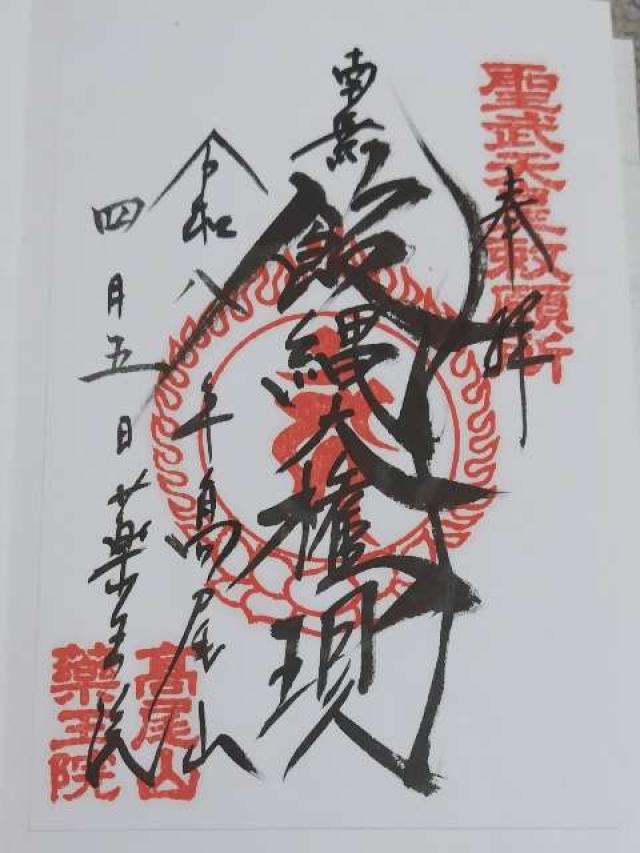 聖武天皇勅願所
奉拝
南無
飯縄大権現
令和八年高尾山
四月五日薬王院
高尾山
薬王院